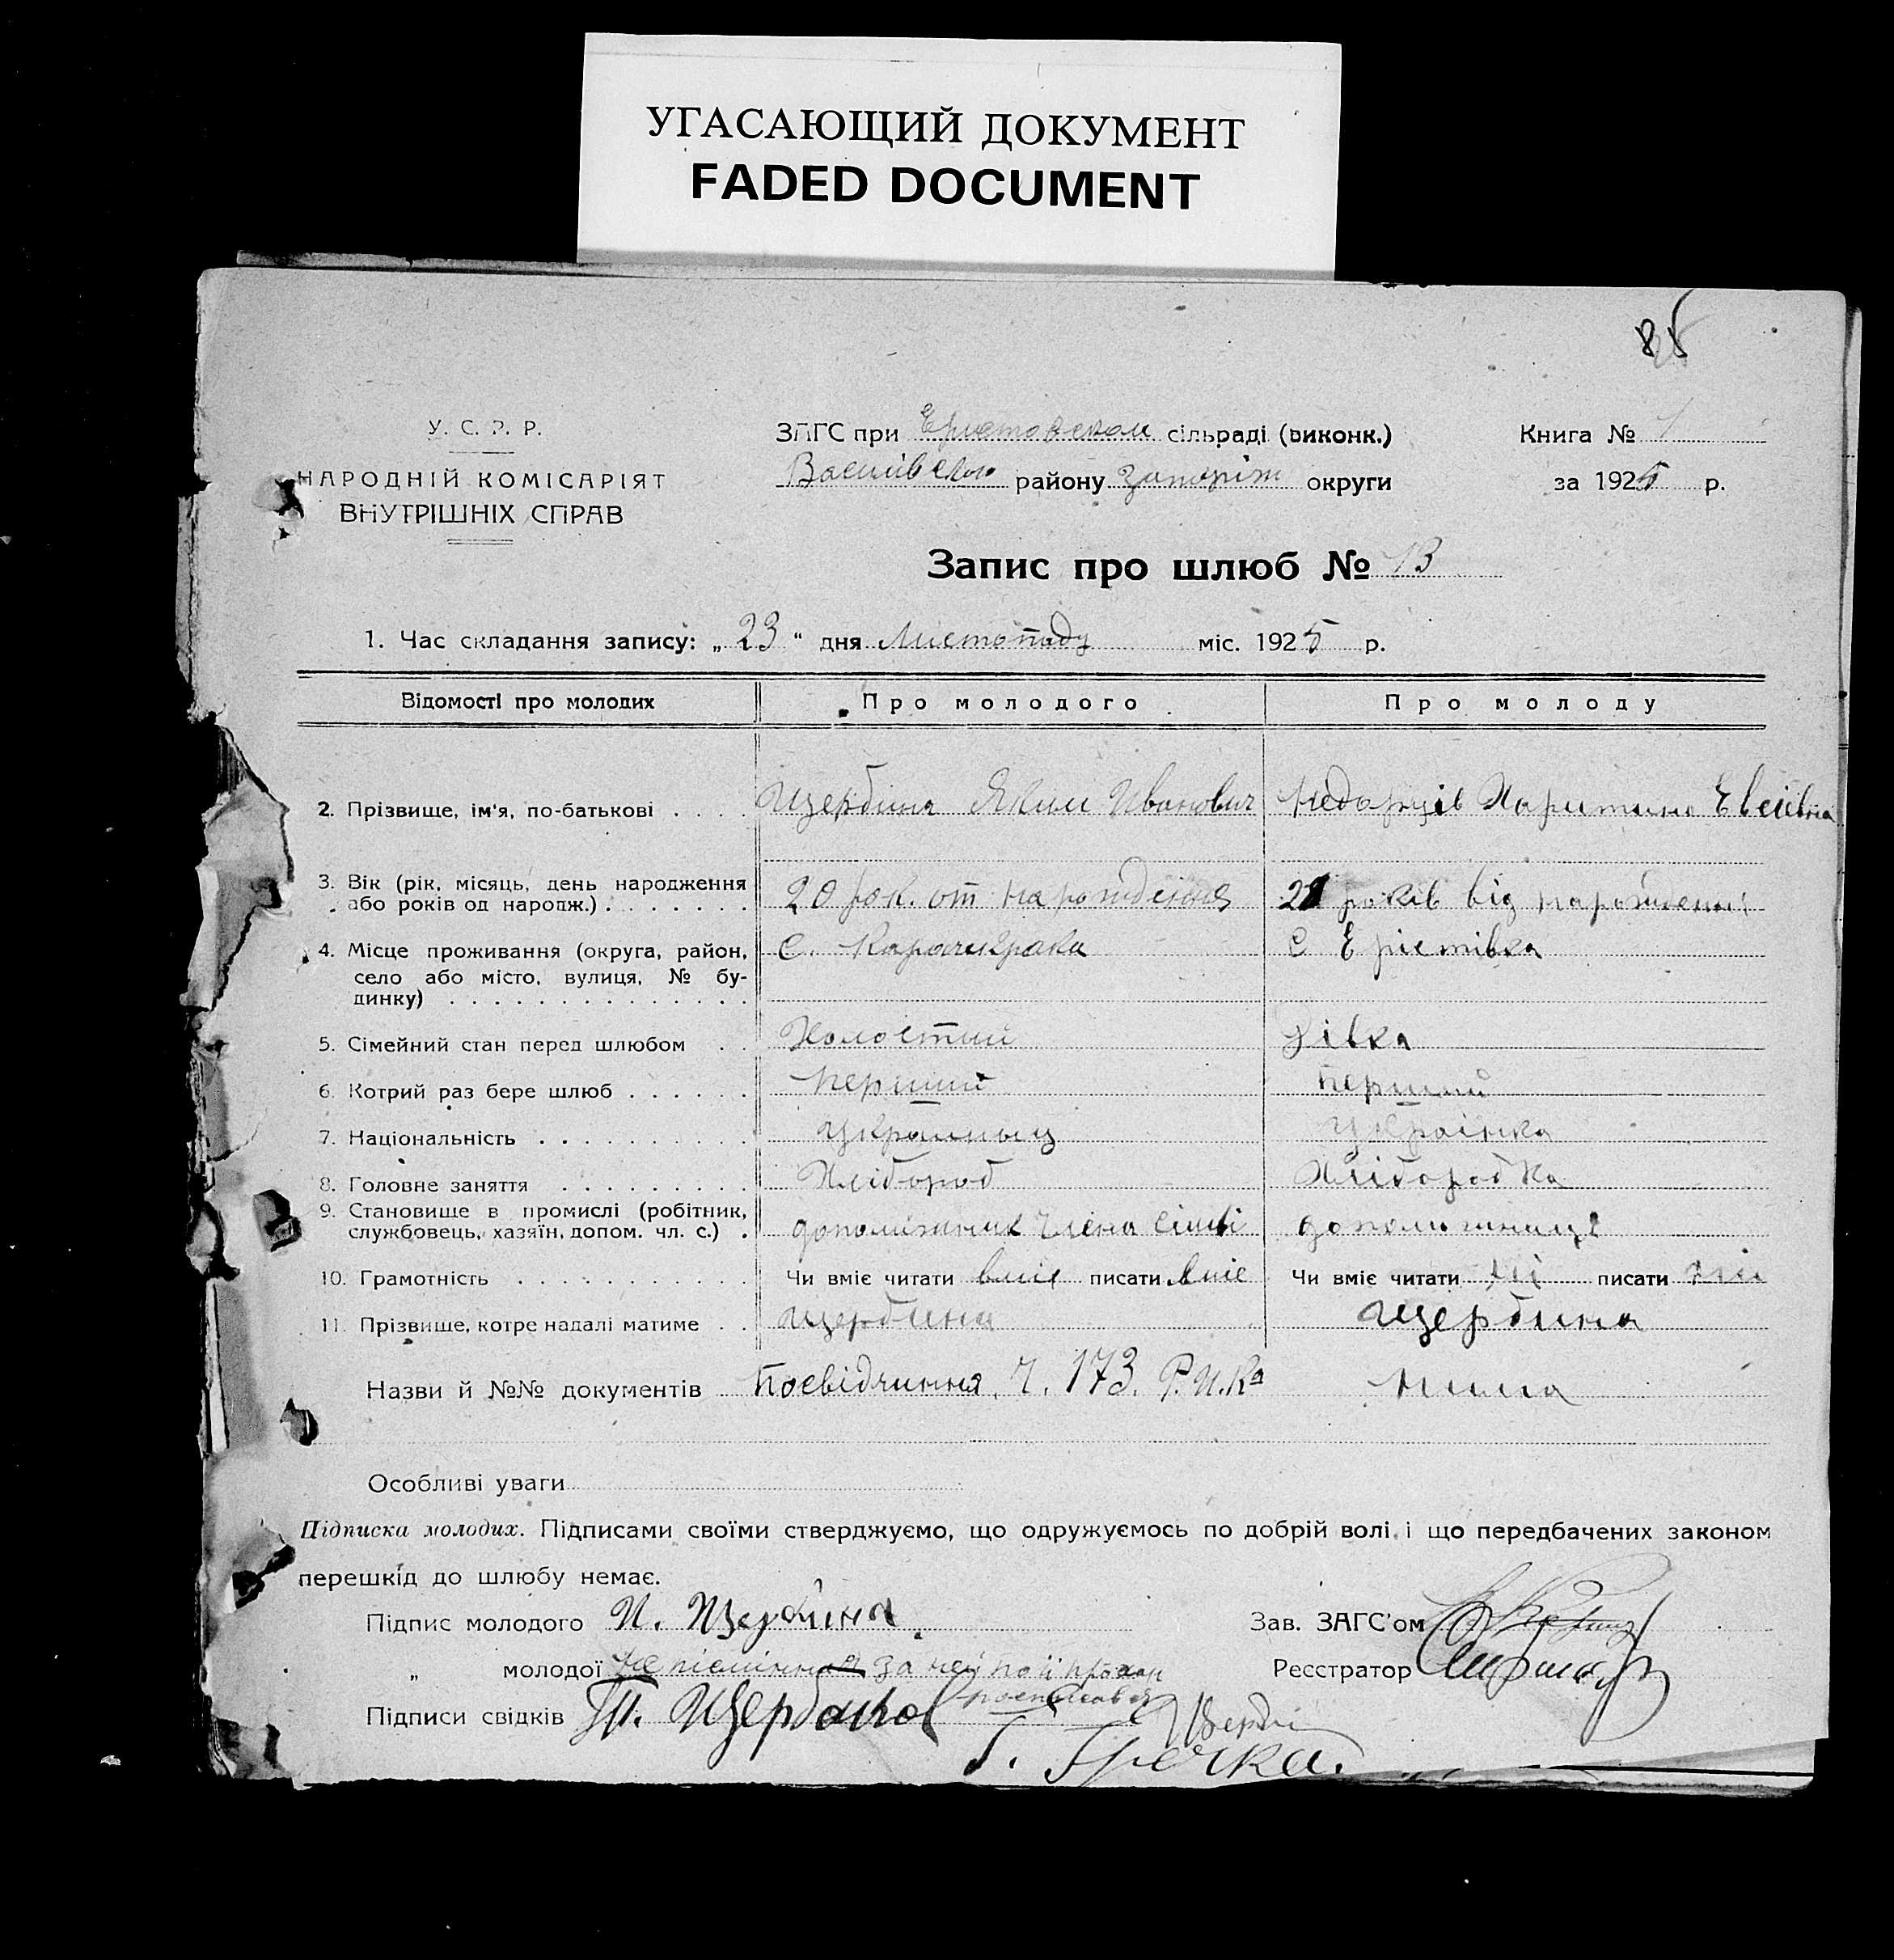 УГАСАЮЩИЙ ДОКУМЕНТ
FADED DOCUMENT
85
У. С. Р. Р.
НАРОДНІЙ КОМІСАРІЯТ
ВНУТРІШНІХ СПРАВ
ЗАГС при Еристовском сільраді (виконк.)
Василівского району Запоріж округи
Книга № 1
за 1925 р.
Запис про шлюб № 13
1. Час складання запису: „ 23 “ дня Листопаду міс. 1925 р.
Відомості про молодих Про молодого Про молоду
2. Прізвище, ім'я, по-батькові . . . . Щербина Яким Иванович Харитина Евсіевна
3. Вік (рік, місяць, день народження 20 рок. от нарождения років від
або років од народж.) . . . . . . .
4. Місце проживання (округа, район, с. Карачекрака с Ерістівка
село або місто, вулиця, № бу-
динку) . . . . . . . . . . . . . .
5. Сімейний стан перед шлюбом . . Холостий Дівка
6. Котрий раз бере шлюб . . . . . . перший перший
7. Національність . . . . . . . . . . Українка
8. Головне заняття . . . . . . . . . Хлібороб Хліборобка
9. Становище в промислі (робітник,
службовець, хазяїн, допом. чл. с.) . допоміжник члена сімьї
10. Грамотність . . . . . . . . . . . Чи вміє читати вміє писати вміє Чи вміє читати ні писати ні
11. Прізвище, котре надалі матиме . . Щербина Щербина
Назви й №№ документів Посвідчиння. Ч. 173. Р.И.Ка Нима
Особливі уваги
Підписка молодих. Підписами своїми стверджуємо, що одружуємось по добрій волі і що передбачених законом
перешкід до шлюбу немає.
Підпис молодого И. Щербина Зав. ЗАГС'ом
„ молодої за неї Реєстратор
Підписи свідків Щербина
Г. Гречка.